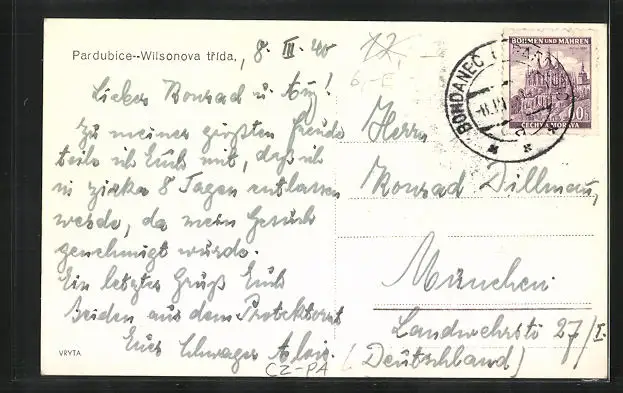 Pardubice--Wilsonova třída,
8. III. 40
Lieber Konrad u.
Zu meiner größten Freude
teile ich Euch mit, daß ich
in zirka 8 Tagen entlassen
werde, da mein Gesuch
genehmigt wurde.
Ein letzter Gruß Euch
Beiden aus dem Protektorat
Euer Schwager Alois.
VRYTA
CZ-PA
BÖHMEN UND MÄHREN
ČECHY A MORAVA
BOHDANEČ
Herrn
Konrad Dillmau,
München
Landwehrstr 27/I.
(Deutschland)